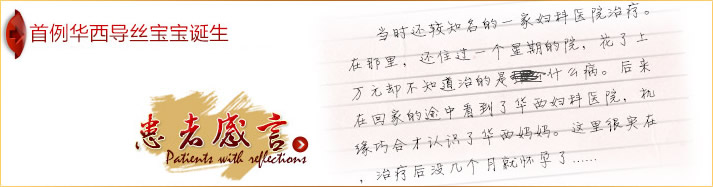 首例华西导丝宝宝诞生
患者感言
Patients with reflections
当时还较知名的一家妇科医院治疗。
在那里，还住过一个星期的院，花了上
万元却不知道治的是什么病。后来
在回家的途中看到了华西妇科医院，机
缘巧合才认识了华西妈妈。这里很实在
，治疗后没几个月就怀孕了……